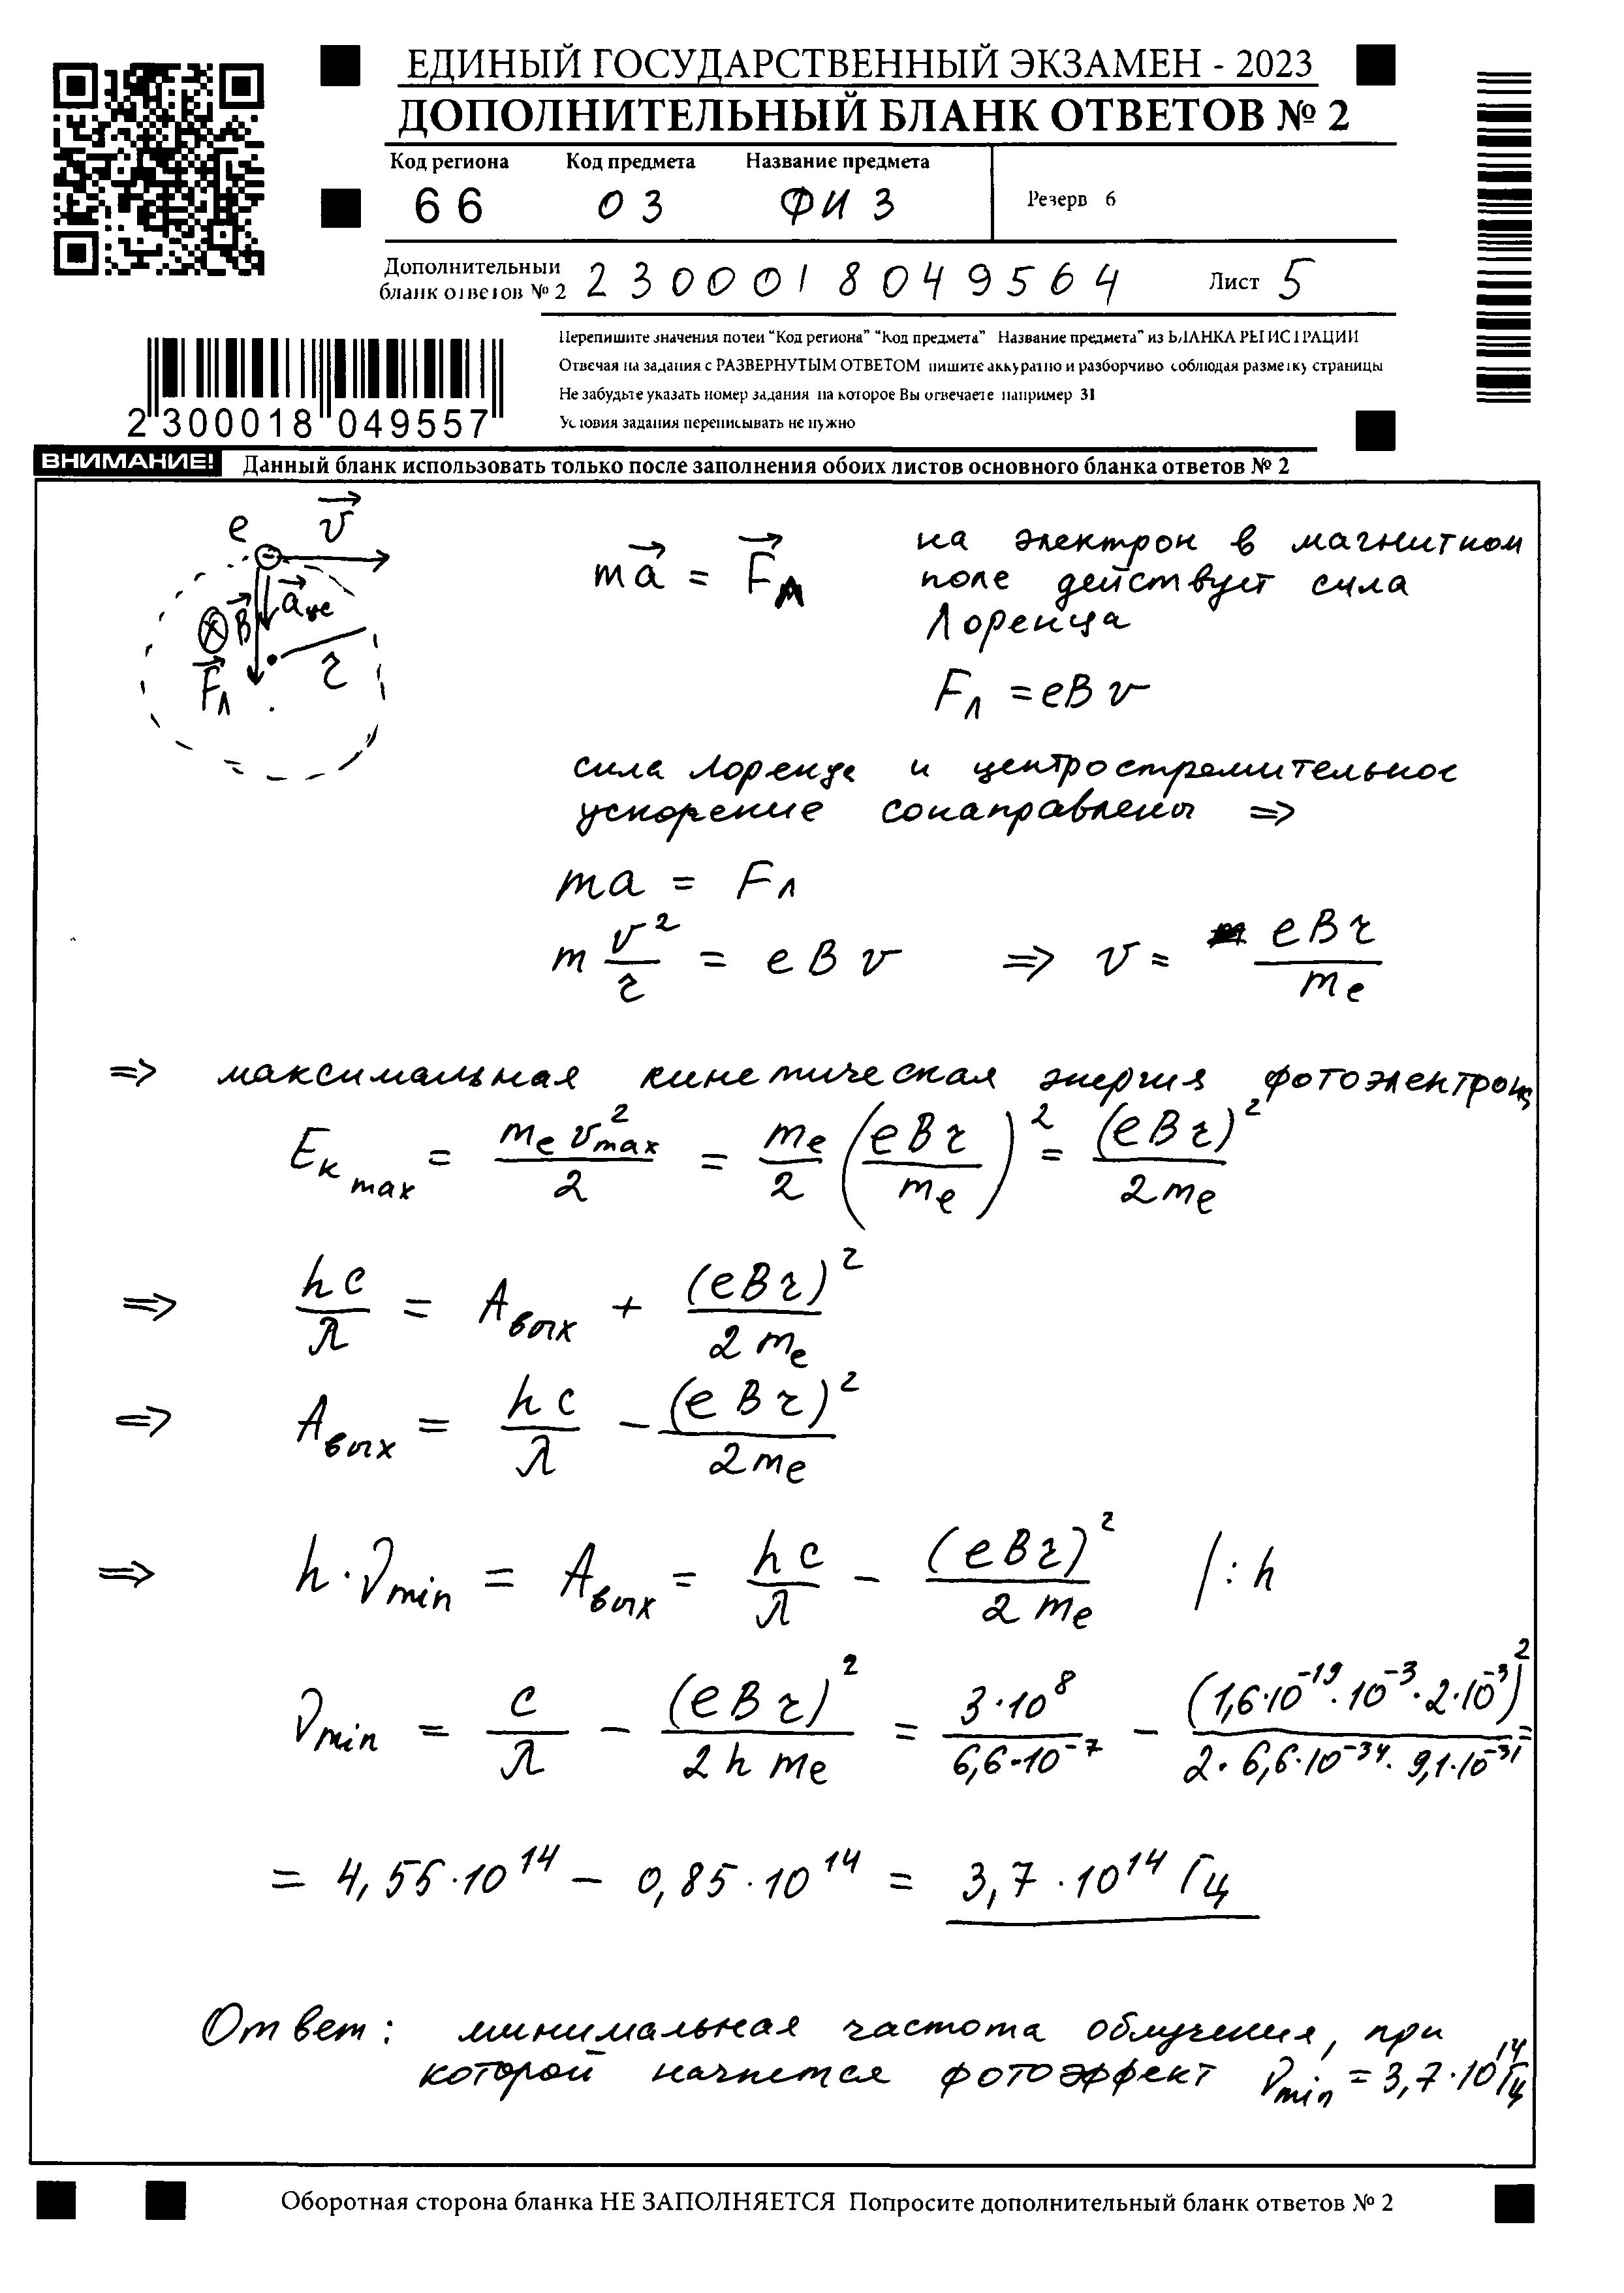 ЕДИНЫЙ ГОСУДАРСТВЕННЫЙ ЭКЗАМЕН - 2023
ДОПОЛНИТЕЛЬНЫЙ БЛАНК ОТВЕТОВ № 2
Код региона Код предмета Название предмета
66 03 ФИЗ Резерв 6
Дополнительный бланк ответов № 2 2300018049564 Лист 5
Перепишите значения полей "Код региона" "Код предмета" Название предмета" из БЛАНКА РЕГИСТРАЦИИ
Отвечая на задания с РАЗВЕРНУТЫМ ОТВЕТОМ пишите аккуратно и разборчиво соблюдая разметку страницы
Не забудьте указать номер задания на которое Вы отвечаете например 31
Условия задания переписывать не нужно
2 300018 049557
ВНИМАНИЕ! Данный бланк использовать только после заполнения обоих листов основного бланка ответов № 2
e v⃗
a⃗цс
B⃗
F⃗л r
ma⃗ = F⃗л
на электрон в магнитном
поле действует сила
Лоренца
Fл = eBv
сила Лоренца и центростремительное
ускорение сонаправлены =>
ma = Fл
m v²/r = eBv => v = eBr/mₑ
=> максимальная кинетическая энергия фотоэлектрона
Eк max = mₑv²max/2 = mₑ/2 (eBr/mₑ)² = (eBr)²/2mₑ
=> hc/λ = Aвых + (eBr)²/2mₑ
=> Aвых = hc/λ - (eBr)²/2mₑ
=> h·νmin = Aвых = hc/λ - (eBr)²/2mₑ /:h
νmin = c/λ - (eBr)²/2hmₑ = 3·10⁸/6,6·10⁻⁷ - (1,6·10⁻¹⁹·10⁻³·2·10⁻³)²/2·6,6·10⁻³⁴·9,1·10⁻³¹ =
= 4,55·10¹⁴ - 0,85·10¹⁴ = 3,7·10¹⁴ Гц
Ответ: минимальная частота облучения, при
которой начнется фотоэффект νmin = 3,7·10¹⁴ Гц
Оборотная сторона бланка НЕ ЗАПОЛНЯЕТСЯ Попросите дополнительный бланк ответов № 2